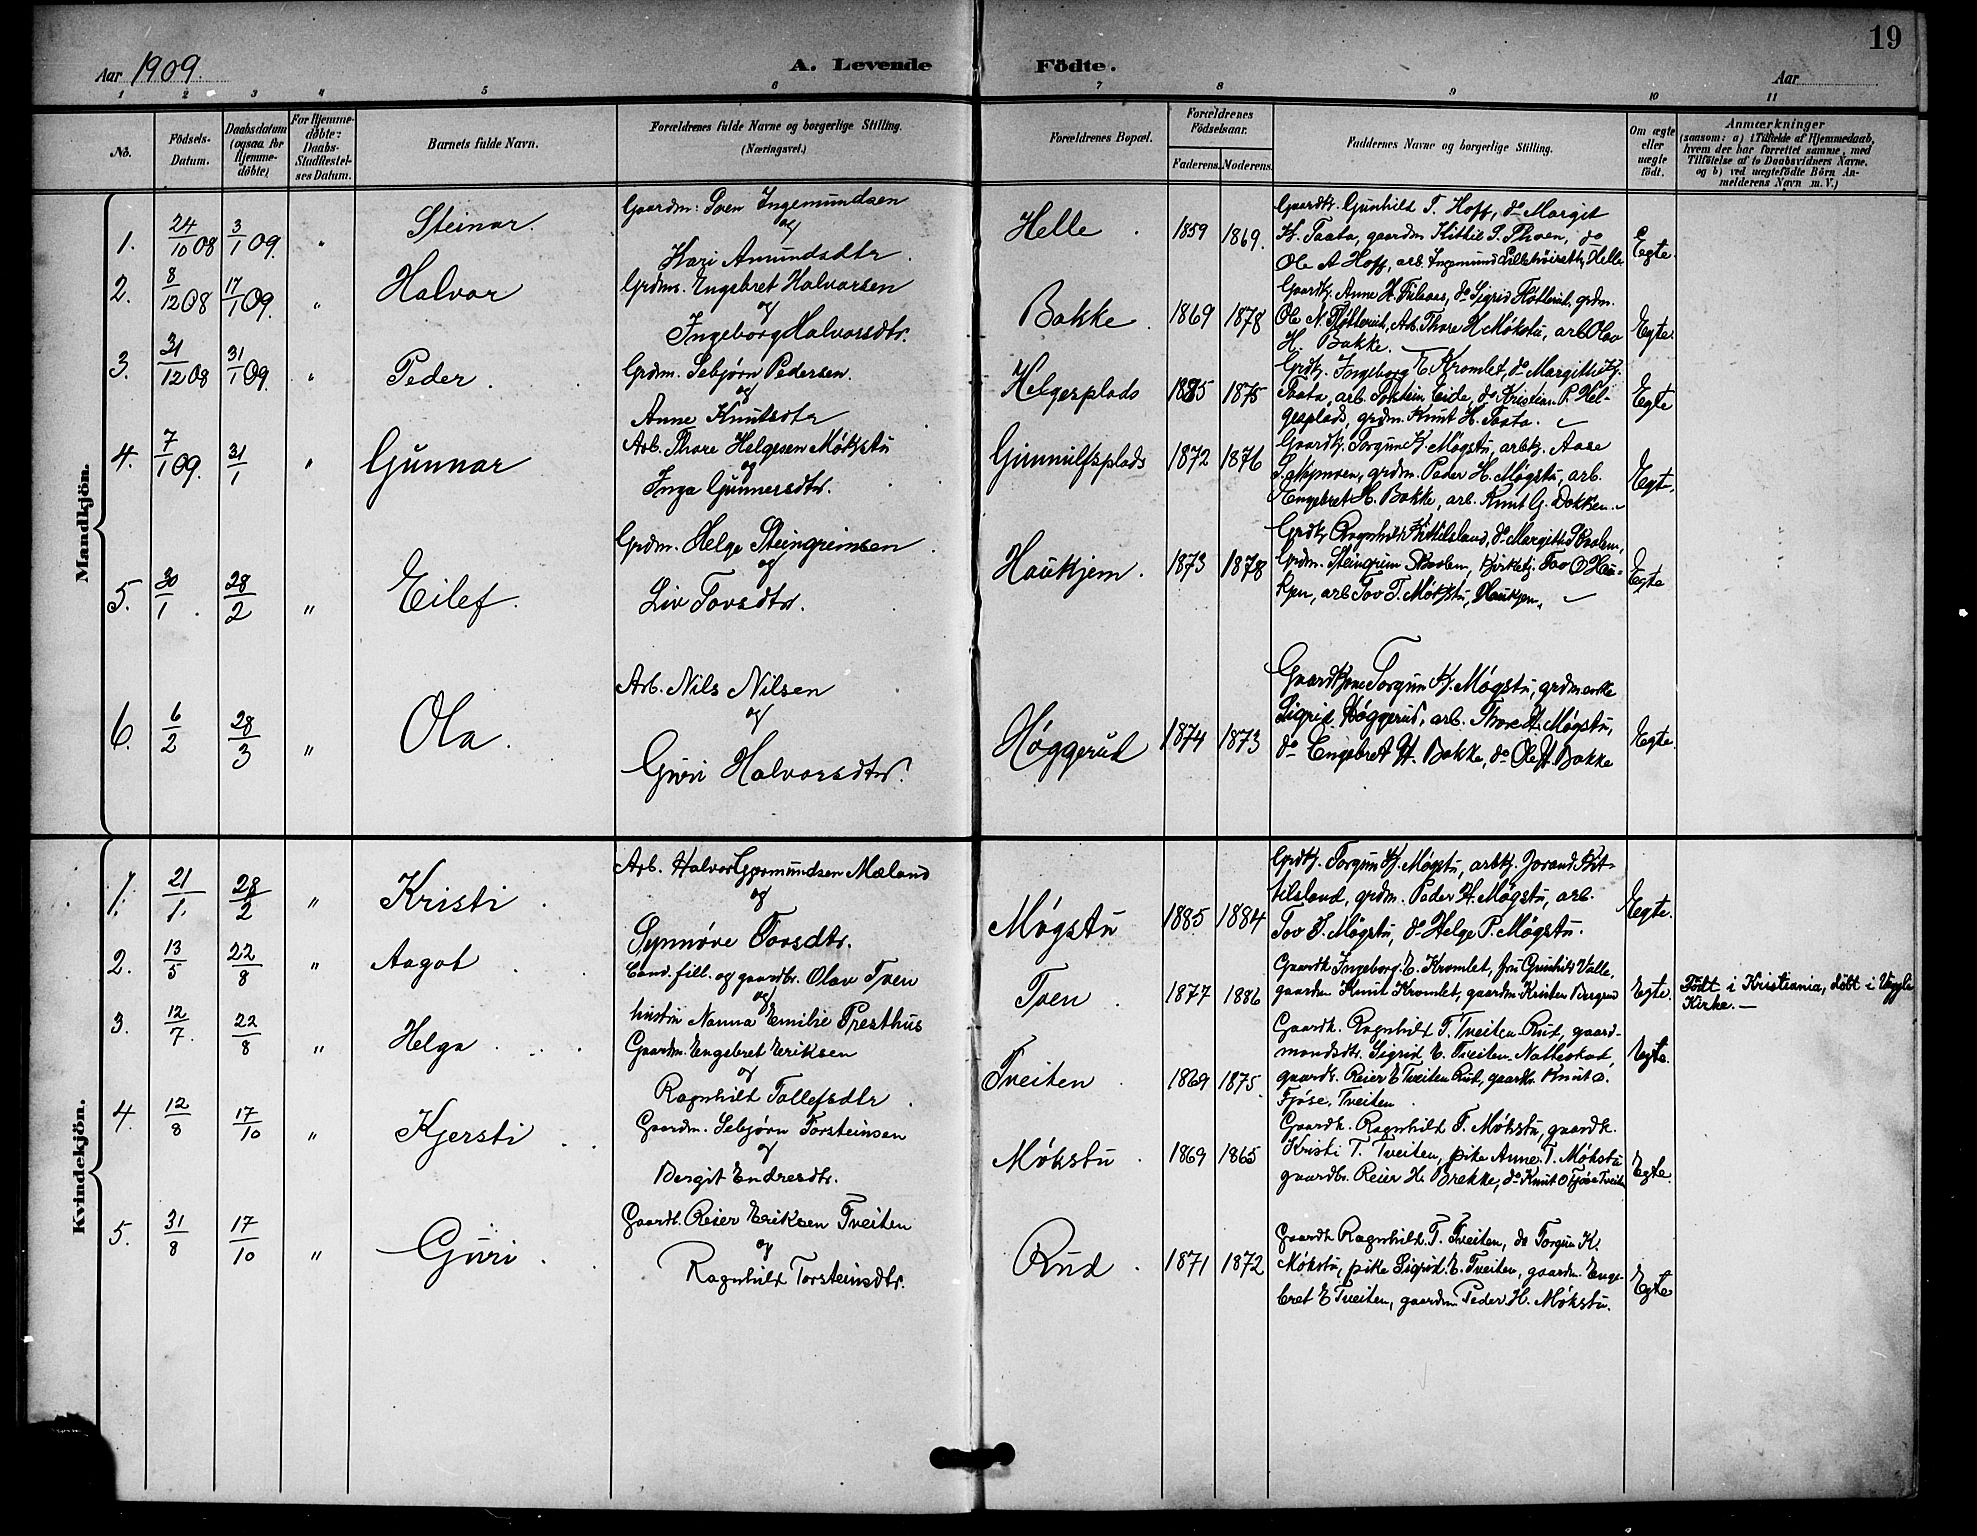 19
Aar 1909.
A. Levende Födte.
Aar
1 2 3 4 5 6 7 8 9 10 11
No.
Födsels-Datum.
Daabsdatum (ogsaa for Hjemme-döbte)
For Hjemme-döbte: Daabs-Stadfæstel-ses Datum.
Barnets fulde Navn.
Forældrenes fulde Navne og borgerlige Stilling. (Næringsvei.)
Forældrenes Bopæl.
Forældrenes Födselsaar.
Faderens. Moderens.
Faddernes Navne og borgerlige Stilling.
Om ægte eller uægte födt.
Anmærkninger
(saasom: a) i Tilfælde af Hjemmedaab, hvem der har forrettet samme, med Tilföielse af to Daabsvidners Navne, og b) ved uægtefödte Börn An-melderens Navn m. V.)
Mandkjön.
1. 24/10 08 3/1 09. " Steinar.
Gaardm: Sven Ingemundsen
og
Kari Amundsdtr.
Helle. 1859 1869.
Gaardk. Gunhild T. Hoff, do Margit
K. Taata, gaardm Kittil T. Thoen, do
Ole A Hoff, arb. Ingemund Helle
Egte.
2. 8/12 08 17/1 09. " Halvor
Grdm. Engebret Halvorsen
og
Ingeborg Halvorsdtr.
Bakke. 1869 1878
Gaardk. Anne H. do Sigrid grdm.
Ole N. Arb. Thore H Møkstu, arb Olav
H. Bakke.
Egte.
3. 31/12 08 31/1 09. " Peder.
Grdm. Sebjørn Pedersen.
og
Anne Knutsdtr
Helgesplads 1885 1875
Grdk. Ingeborg E Kromlet, do Margit K.
Taata, arb. Eide, do Kristian P. Hel-
gesplads, grdm. Knut H. Taata.
Egte
4. 7/1 09. 31/1 " Gunnar
Arb. Thore Helgesen Møkstu
og
Inga Gunnersdtr.
Gunnulfsplads 1872 1876
Gaardk. Torgun K. Møgstu, arbk. Aase
grdm. Peder H. Møgstu, arb.
Engebret H. Bakke, arb. Knut G. Dokken.
Egt.
5. 30/1. 28/2 " Eilef.
Grdm. Helge Steingrimsen
og
Liv Tovsdtr.
Haukjem. 1873 1878
Grdk. Ragnhild Kittilsland, do Margit
Grdm. Steingrim Kirketj. Tov O Hau-
kjen, arb Tov T. Møkstu, Haukjem.
Egte
6. 6/2 28/3 " Ola.
Arb. Nils Nilsen
og
Guri Halvorsdtr.
Høggerud 1874 1873
Gaardkone Torgun K. Møgstu, grdmenke
Sigrid Høggerud, arb. Thore H. Møgstu,
do Engebret H. Bakke, do Ole H. Bakke
Egte.
Kvindekjön.
1. 21/1. 28/2 " Kristi.
Arb. Halvor Gjermundsen Mæland
og
Synnøve Tovsdtr.
Møgstu 1885 1884
Grdk. Torgun K. Møgstu, arbk. Jorand Kit-
tilsland, grdm. Peder H. Møgstu, arb.
Tov T. Møgstu, do Helge P. Møgstu.
Egte.
2. 13/5 22/8 " Aagot.
Cand. fill. og gaardbr. Olav Tven
og
hustru Nanna Emilie Presthus
Tven. 1877 1886
Gaardk Ingeborg E. Kromlet, fru Gunhild Valle,
gaardm Knut Kromlet, gaardm Kristen Bergerud
Egte.
Födt i Kristiania, döbt i Veggli
Kirke.—
3. 12/7. 22/8 " Helga....
Gaardm. Engebret Eriksen
og
Ragnhild Tollefsdtr.
Tveiten. 1869 1875.
Gaardk. Ragnhild T. Tveiten-Rud, gaard-
mandsdtr. Sigrid E. Tveiten.
gaardbr. Reier E Tveiten Rud, gaardbr. Knut O.
Fjøse, Tveiten.
Egte.
4. 12/8 17/10 " Kjersti..
Gaardm. Sebjørn Torsteinsen
og
Birgit Endresdtr.
Møkstu. 1869 1865
Gaardk. Ragnhild T. Møkstu, gaardk.
Kristi T. Tveiten, pike Anne T. Møkstu
gaardbr. Reier H. Brekke, do Knut O Fjøse Tveiten
Egte.
5. 31/8 17/10 " Guri.
Gaardb. Reier Eriksen Tveiten
og
Ragnhild Torsteinsdtr.
Rud. 1871 1872
Gaardk Ragnhild T. Tveiten, do Torgun K.
Møkstu, pike Sigrid E. Tveiten, gaardm. Enge-
bret E Tveiten, gaardm Peder H. Møkstu.
Egte